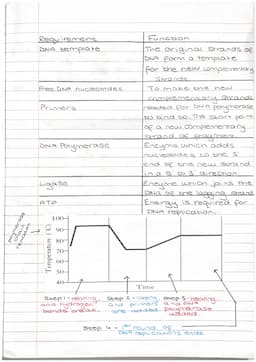 Requirement Function
DNA template The original strands of
DNA form a template
for the new complementary
strands
Free DNA nucleotides To make the new
complementary strands
Primers needed for DNA polymerase
to bind to. The start point
of a new complementary
strand or fragment
DNA Polymerase Enzyme which adds
nucleotides to the 3'
end of the new strand
in a 5' to 3' direction.
Ligase Enzyme which joins the
DNA of the lagging strand
ATP Energy is required for
DNA replication.
100
90
80
70
60
50
40
Temperature (°C)
Time
Step 1 - Heating
and hydrogen
bonds break.
Step 2 - Cooling
and primers
are added
Step 3 - Heating
and DNA
polymerase
added.
Step 4 - 1st round of
DNA replication ends